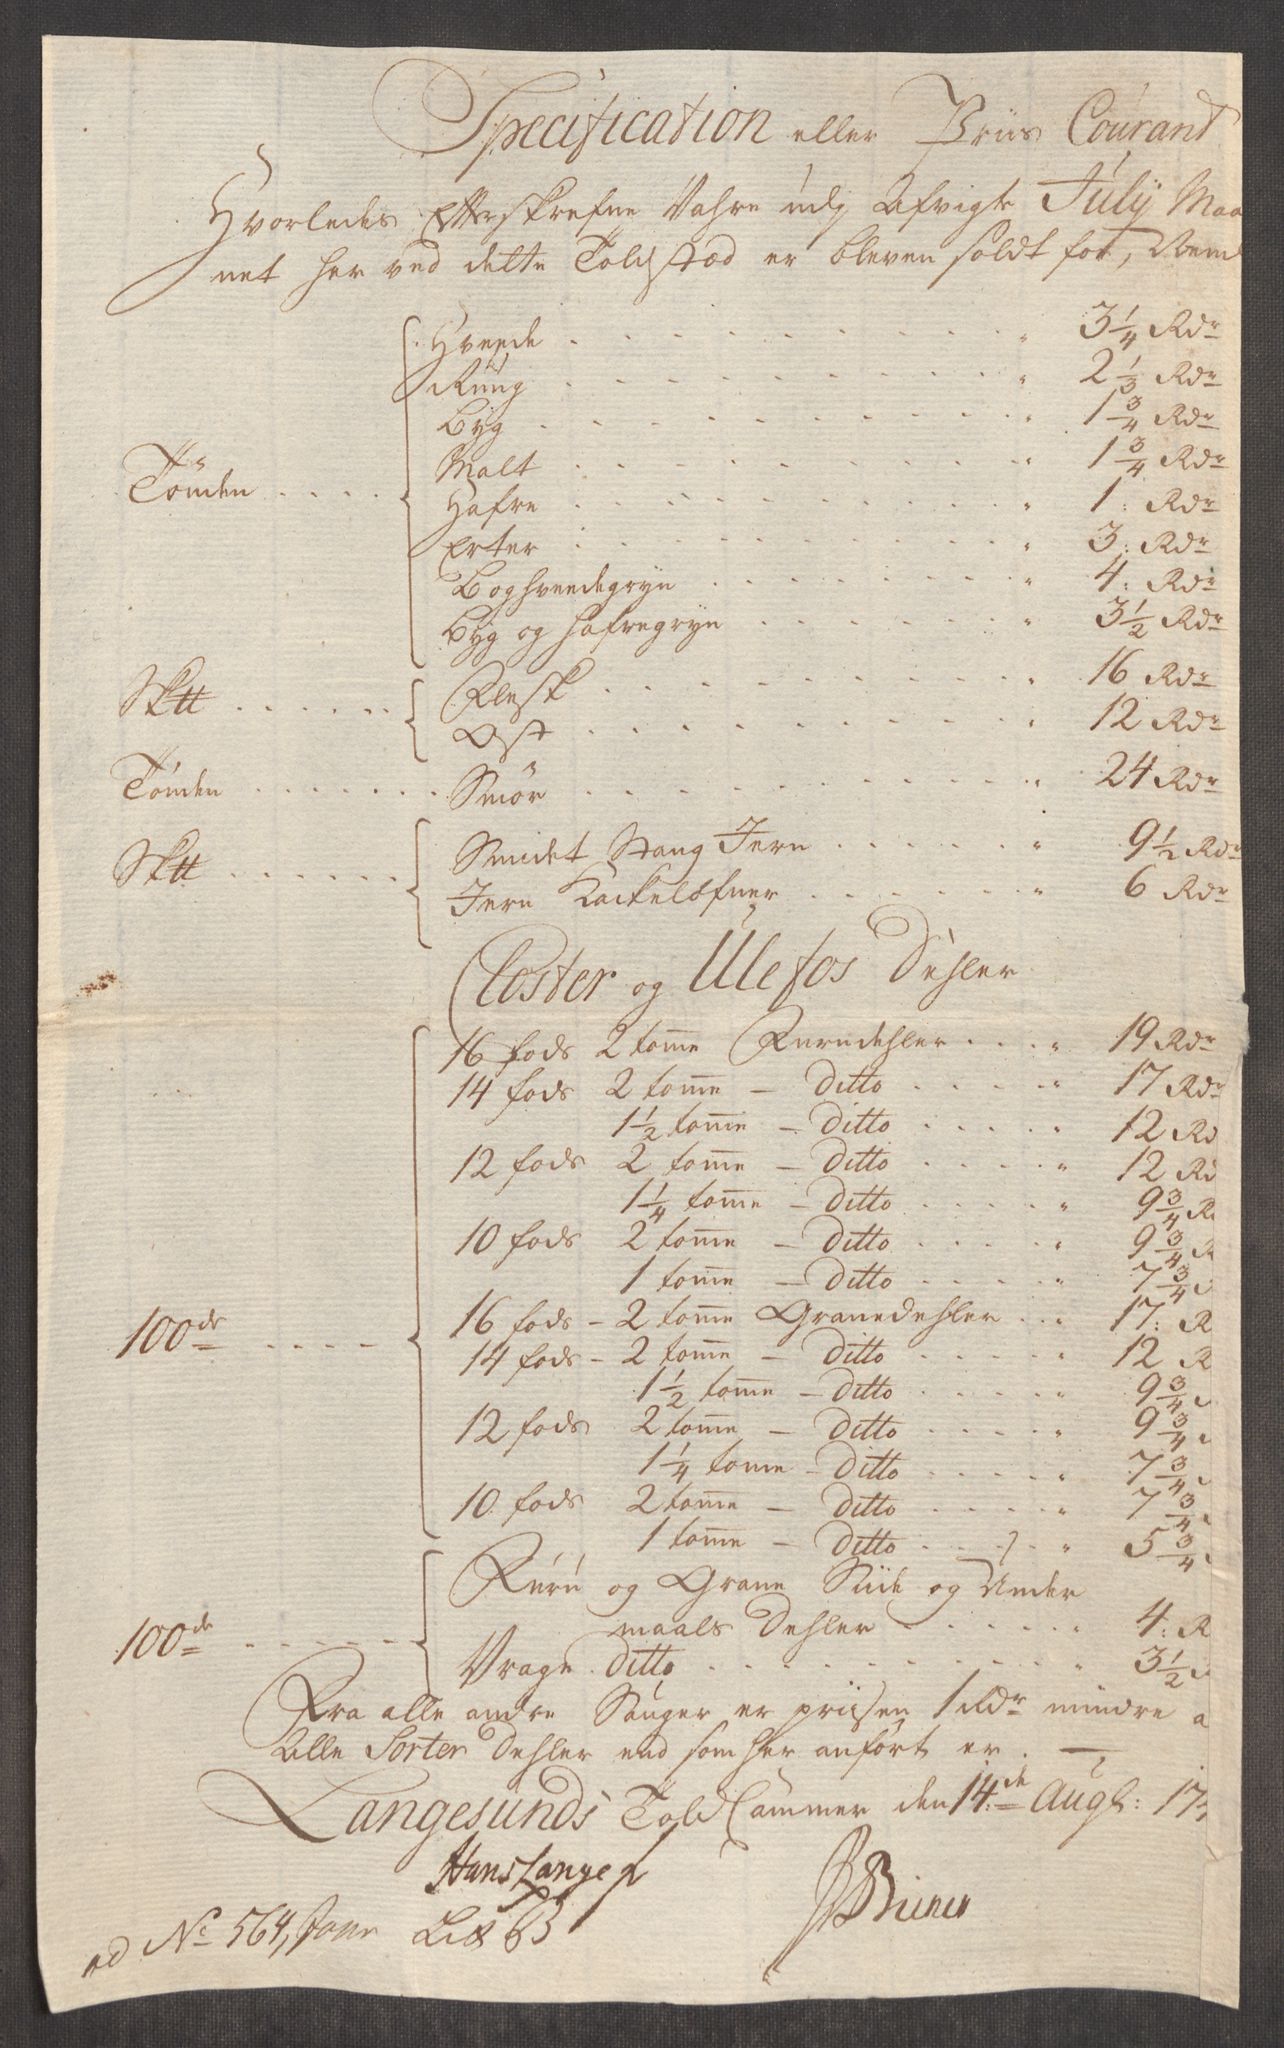 Specification eller Priis Courant
Hvorledes Efterskrefne Vahre udj Afvigte Julij Maa
net her ved dette Toldstæd er bleven soldt for, Neml
Hveede 3 1/4 Rdr
Rüüg 2 1/3 Rdr
Byg 1 3/4 Rdr
Malt 1 3/4 Rdr
Tönden
Hafre 1: Rdr
Erter 3: Rdr
Boghveedegryn 4: Rdr
Byg og hafregryn 3 1/2 Rdr
Sk℔ Flesk 16 Rdr
Ost 12 Rdr
Tönden Smör 24 Rdr
Sk℔ Smidet Stang Jern 9 1/2 Rdr
Jern Kackelofner 6 Rdr
Closter og Ulefos Dehler
16 fods 2 tome Furudehler 19 Rdr
14 fods 2 tome - Ditto 17 Rdr
1 1/2 tome - Ditto 12 Rd
12 fods 2 tome - Ditto 12 Rd
1 1/4 tome - Ditto 9 3/4 R
10 fods 2 tome - Ditto 9 3/4 R
1 tome - Ditto 7 3/4
100de 16 fods - 2 tome Granedehler 17: R
14 fods - 2 tome - Ditto 12 R
1 1/2 tome - Ditto 9 3/4
12 fods 2 tome - Ditto 9 3/4
1 1/4 tome - Ditto 7 3/4
10 fods 2 tome - Ditto 7 3/4
1 tome - Ditto 5 3/4
Furu og Grane Siide og Under
100de maals Dehler 4: R
Vrage ditto 3 1/2
Fra alle andre Sauger er priisen 1 Rdr mindre a
Alle Sorter Dehler end som her anfört er.
Langesunds Told Cammer den 14de Aug: 17
Hans Lange
ad No 564, Lit B